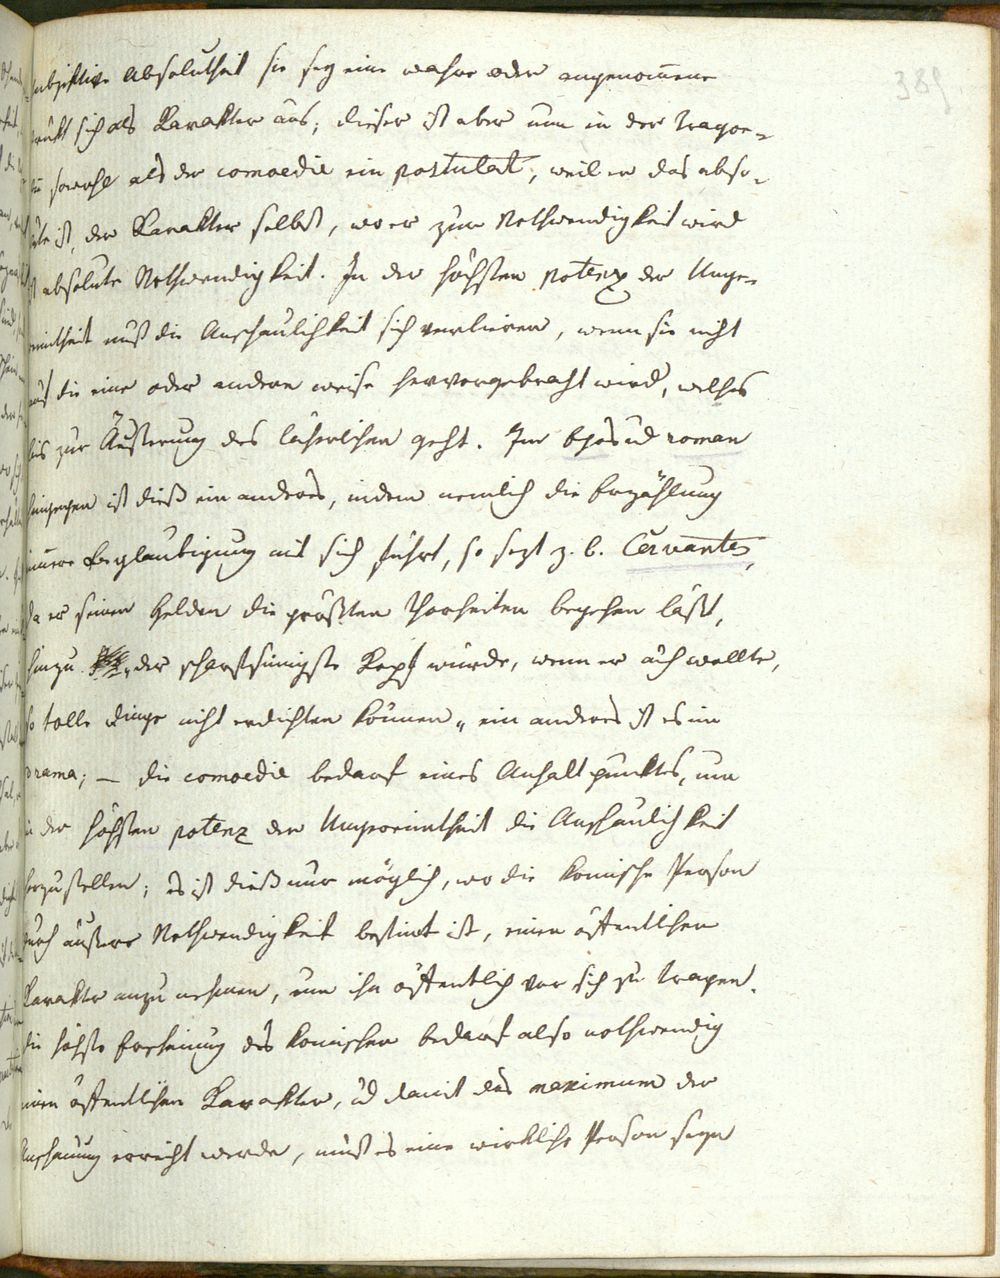 385
subjektive Absolutheit sie sey eine wahre oder angenom̅ene
drükt sich als Karakter aus; dieser ist aber nun in der tragoe-
die sowohl als der comoedie ein postulat, weil er das abso-
lute ist, der Karakter selbst, wo er zur Nothwendigkeit wird
ist absolute Nothwendigkeit. In der höchsten potenz der Unge-
reimtheit muß die Anschaulichkeit sich verlieren, wenn sie nicht
auf die eine oder andere weise hervorgebracht wird, welches
bis zur Äußerung des lächerlichen geht. Im Epos ud roman
hingegen ist dieß ein anders, indem nemlich die Erzählung
ihre Beglaubigung mit sich führt, so sezt z. b. Cervantes,
da er seinen Helden die größten Thorheiten begehen läßt,
hinzu „der scharfsinnigste Kopf würde, wenn er auch wollte,
so tolle dinge nicht erdichten können„ ein anders ist es im
drama; — die comoedie bedarf eines Anhaltpunktes, um
in der höchsten potenz der Ungereimtheit die Anschaulichkeit
herzustellen; es ist dieß nur möglich, wo die komische Person
durch äußere Nothwendigkeit bestim̅t ist, einen öffentlichen
Karakter anzunehmen, um ihn öffentlich vor sich zu tragen.
die höchste Erscheinung des komischen bedarf also nothwendig
einen öffentlichen Karakter, ud damit das maximum der
Anschauung erreicht werde, muß es eine wirkliche Person seyn